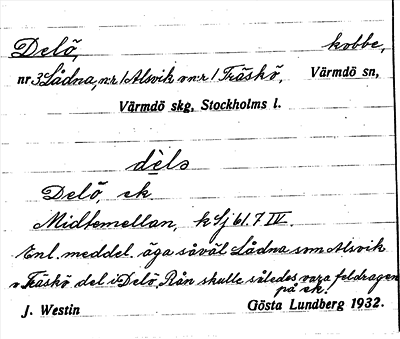 Delö, kobbe,
nr 3 Lådna, nr 1 Alsvik o nr 1 Träskö, Värmdö sn,
Värmdö skg, Stockholms l.
dèlə
Delö, ek.
Midtemellan, k Sj 61. 7 IV.
Enl. meddel. äga såväl Lådna som Alsvik
o Träskö del i Delö. Rån skulle således vara feldragen
på ek.
J. Westin Gösta Lundberg 1932.